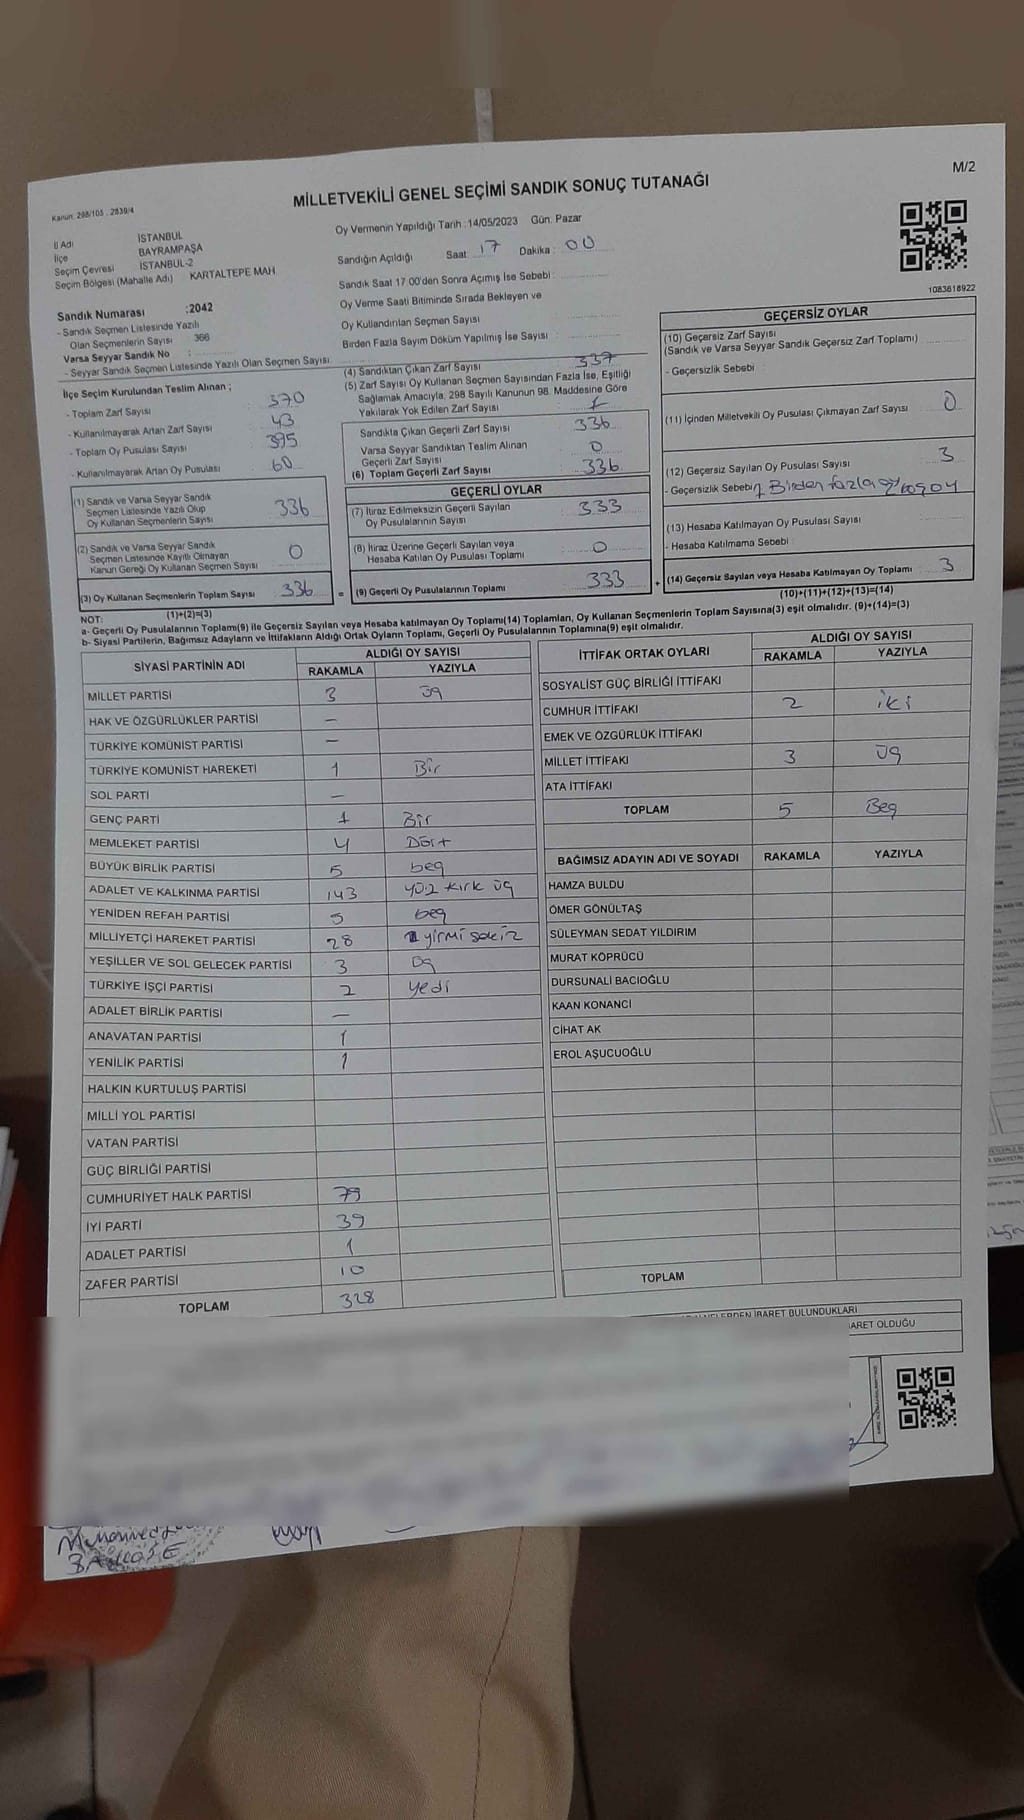 M/2
MİLLETVEKİLİ GENEL SEÇİMİ SANDIK SONUÇ TUTANAĞI
Kanun: 298/105 , 2839/4
İl Adı İSTANBUL
İlçe BAYRAMPAŞA
Seçim Çevresi İSTANBUL-2
Seçim Bölgesi (Mahalle Adı) KARTALTEPE MAH
Sandık Numarası :2042
- Sandık Seçmen Listesinde Yazılı
Olan Seçmenlerin Sayısı 366
Varsa Seyyar Sandık No :
- Seyyar Sandık Seçmen Listesinde Yazılı Olan Seçmen Sayısı:
Oy Vermenin Yapıldığı Tarih : 14/05/2023 Gün. Pazar
Sandığın Açıldığı Saat: 17 Dakika : 00
Sandık Saat 17 00'den Sonra Açımış İse Sebebi :
Oy Verme Saati Bitiminde Sırada Bekleyen ve
Oy Kullandırılan Seçmen Sayısı :
Birden Fazla Sayım Döküm Yapılmış İse Sayısı :
1083618922
İlçe Seçim Kurulundan Teslim Alınan ;
- Toplam Zarf Sayısı 370
- Kullanılmayarak Artan Zarf Sayısı 43
- Toplam Oy Pusulası Sayısı 395
- Kullanılmayarak Artan Oy Pusulası 60
(1) Sandık ve Varsa Seyyar Sandık
Seçmen Listesinde Yazılı Olup
Oy Kullanan Seçmenlerin Sayısı 336
(2) Sandık ve Varsa Seyyar Sandık
Seçmen Listesinde Kayıtlı Olmayan
Kanun Gereği Oy Kullanan Seçmen Sayısı 0
(3) Oy Kullanan Seçmenlerin Toplam Sayısı 336
(1)+(2)=(3)
(4) Sandıktan Çıkan Zarf Sayısı 337
(5) Zarf Sayısı Oy Kullanan Seçmen Sayısından Fazla İse, Eşitliği
Sağlamak Amacıyla, 298 Sayılı Kanunun 98. Maddesine Göre
Yakılarak Yok Edilen Zarf Sayısı 1
Sandıkta Çıkan Geçerli Zarf Sayısı 336
Varsa Seyyar Sandıktan Teslim Alınan
Geçerli Zarf Sayısı 0
(6) Toplam Geçerli Zarf Sayısı 336
GEÇERLİ OYLAR
(7) İtiraz Edilmeksizin Geçerli Sayılan
Oy Pusulalarının Sayısı 333
(8) İtiraz Üzerine Geçerli Sayılan veya
Hesaba Katılan Oy Pusulası Toplamı 0
= (9) Geçerli Oy Pusulalarının Toplamı 333 +
GEÇERSİZ OYLAR
(10) Geçersiz Zarf Sayısı
(Sandık ve Varsa Seyyar Sandık Geçersiz Zarf Toplamı)
- Geçersizlik Sebebi :
(11) İçinden Milletvekili Oy Pusulası Çıkmayan Zarf Sayısı 0
(12) Geçersiz Sayılan Oy Pusulası Sayısı 3
- Geçersizlik Sebebi Birden fazla
(13) Hesaba Katılmayan Oy Pusulası Sayısı
- Hesaba Katılmama Sebebi :
(14) Geçersiz Sayılan veya Hesaba Katılmayan Oy Toplamı 3
(10)+(11)+(12)+(13)=(14)
NOT:
a- Geçerli Oy Pusulalarının Toplamı(9) ile Geçersiz Sayılan veya Hesaba katılmayan Oy Toplamı(14) Toplamları, Oy Kullanan Seçmenlerin Toplam Sayısına(3) eşit olmalıdır. (9)+(14)=(3)
b- Siyasi Partilerin, Bağımsız Adayların ve İttifakların Aldığı Ortak Oyların Toplamı, Geçerli Oy Pusulalarının Toplamına(9) eşit olmalıdır.
SİYASİ PARTİNİN ADI ALDIĞI OY SAYISI
RAKAMLA YAZIYLA
MİLLET PARTİSİ 3 üç
HAK VE ÖZGÜRLÜKLER PARTİSİ —
TÜRKİYE KOMÜNİST PARTİSİ —
TÜRKİYE KOMÜNİST HAREKETİ 1 Bir
SOL PARTİ —
GENÇ PARTİ 1 Bir
MEMLEKET PARTİSİ 4 Dört
BÜYÜK BİRLİK PARTİSİ 5 beş
ADALET VE KALKINMA PARTİSİ 143 yüz kırk üç
YENİDEN REFAH PARTİSİ 5 beş
MİLLİYETÇİ HAREKET PARTİSİ 28 yirmi sekiz
YEŞİLLER VE SOL GELECEK PARTİSİ 3 üç
TÜRKİYE İŞÇİ PARTİSİ 7 yedi
ADALET BİRLİK PARTİSİ —
ANAVATAN PARTİSİ 1
YENİLİK PARTİSİ 1
HALKIN KURTULUŞ PARTİSİ
MİLLİ YOL PARTİSİ
VATAN PARTİSİ
GÜÇ BİRLİĞİ PARTİSİ
CUMHURİYET HALK PARTİSİ 79
İYİ PARTİ 39
ADALET PARTİSİ 1
ZAFER PARTİSİ 10
TOPLAM 328
İTTİFAK ORTAK OYLARI ALDIĞI OY SAYISI
RAKAMLA YAZIYLA
SOSYALİST GÜÇ BİRLİĞİ İTTİFAKI
CUMHUR İTTİFAKI 2 iki
EMEK VE ÖZGÜRLÜK İTTİFAKI
MİLLET İTTİFAKI 3 üç
ATA İTTİFAKI
TOPLAM 5 Beş
BAĞIMSIZ ADAYIN ADI VE SOYADI RAKAMLA YAZIYLA
HAMZA BULDU
ÖMER GÖNÜLTAŞ
SÜLEYMAN SEDAT YILDIRIM
MURAT KÖPRÜCÜ
DURSUNALİ BACIOĞLU
KAAN KONANCİ
CİHAT AK
EROL AŞUCUOĞLU
TOPLAM
İBARET BULUNDUKLARI
ARET OLDUĞU